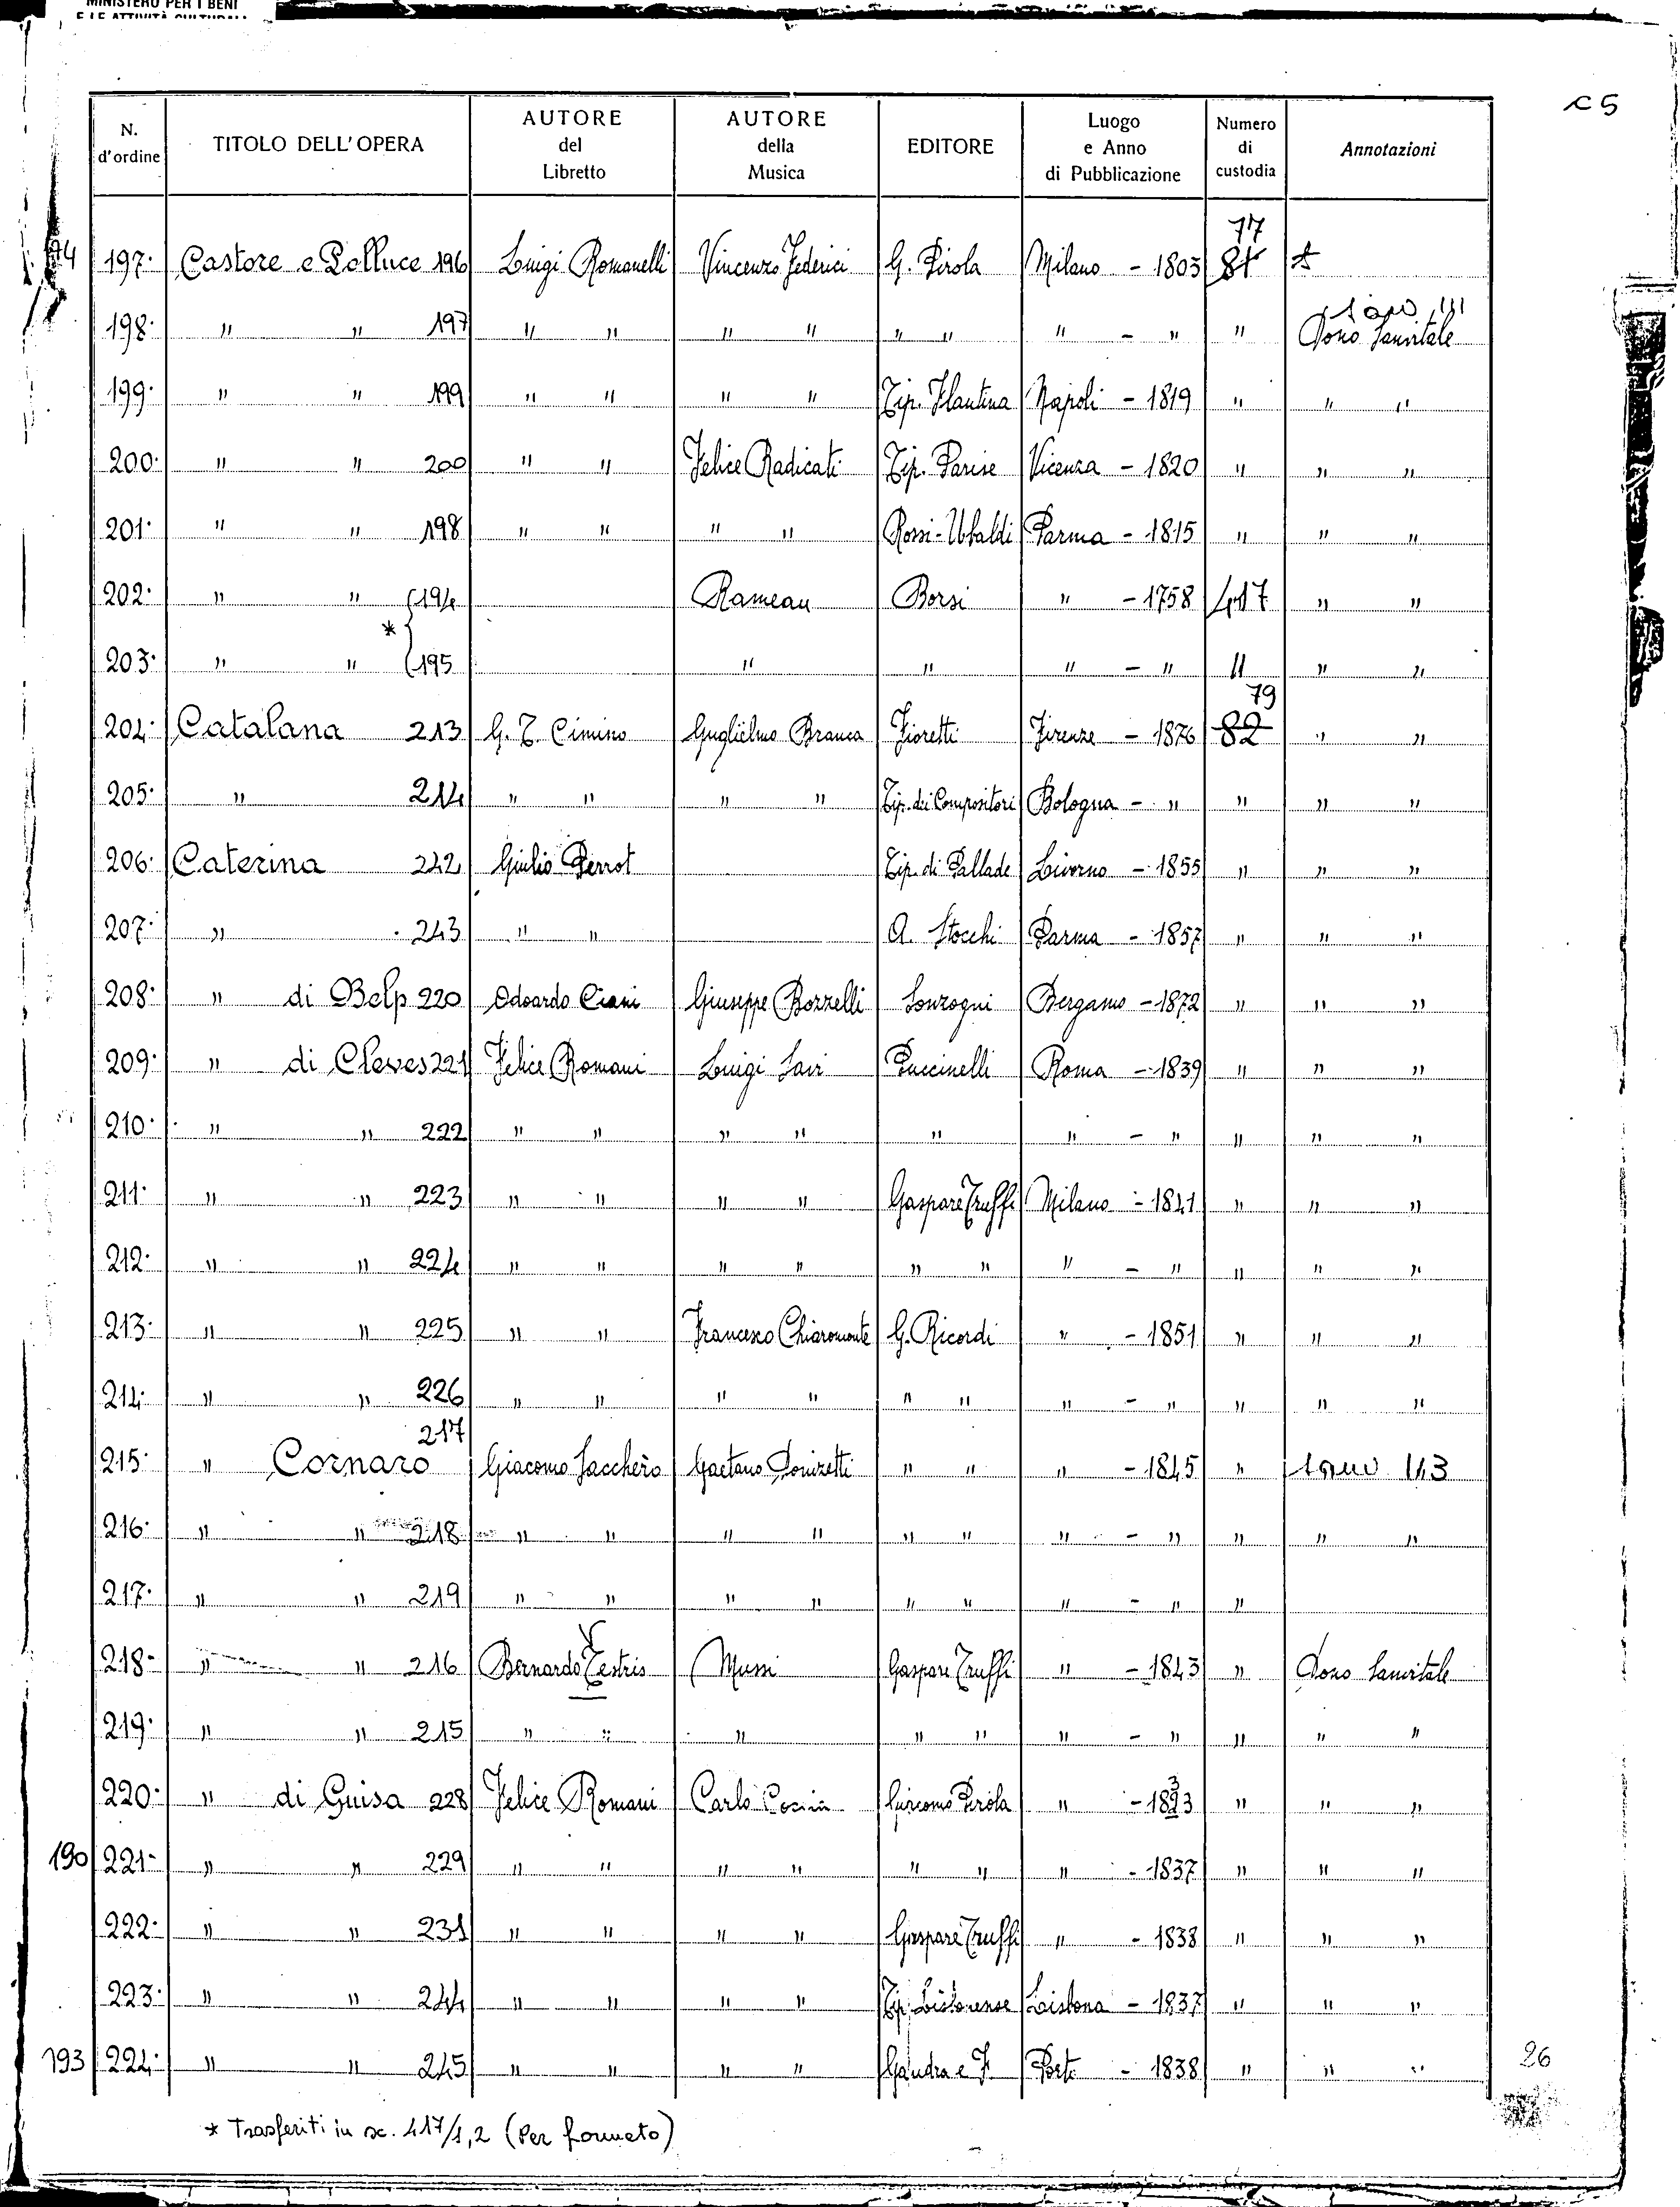 MINISTERO PER I BENI
E LE ATTIVITÀ CULTURALI
c5
N. d'ordine TITOLO DELL'OPERA AUTORE del Libretto AUTORE della Musica EDITORE Luogo e Anno di Pubblicazione Numero di custodia Annotazioni
77
197. Castore e Polluce 196 Luigi Romanelli Vincenzo Federici G. Pirola Milano - 1803 81
198. " " 197 " " " " " " " - " " Dono Sanvitale
199. " " 199 " " " " Tip. Flautina Napoli - 1819 " " "
200. " " 200 " " Felice Radicati Tip. Parise Vicenza - 1820 " " "
201. " " 198 " " " " Rossi-Ubaldi Parma - 1815 " " "
202. " " 194 Rameau Borsi " - 1758 417 " "
*
203. " " 195 " " " - " " " "
79
204. Catalana 213 G. T. Cimino Guglielmo Branca Fioretti Firenze - 1876 82 " "
205. " 214 " " " " Tip. dei Compositori Bologna - " " " "
206. Caterina 242 Giulio Perrot Tip. di Pallade Livorno - 1855 " " "
207. " 243 " " A. Stocchi Parma - 1857 " " "
208. " di Belp 220 Edoardo Ciani Giuseppe Bozzelli Sonzogni Bergamo - 1872 " " "
209. " di Cleves 221 Felice Romani Luigi Savi Puccinelli Roma - 1839 " " "
210. " " 222 " " " " " " - " " " "
211. " " 223 " " " " Gaspare Truffi Milano - 1841 " " "
212. " " 224 " " " " " " " - " " " "
213. " " 225 " " Francesco Chiaromonte G. Ricordi " - 1851 " " "
214. " " 226 " " " " " " " - " " " "
217
215. " Cornaro Giacomo Sacchero Gaetano Donizetti " " " - 1845 " 143
216. " " 218 " " " " " " " - " " " "
217. " " 219 " " " " " " " - " "
218. " " 216 Bernardo Testris Mussi Gaspare Truffi " - 1843 " Dono Sanvitale
219. " " 215 " " " " " " - " " " "
220. " di Guisa 228 Felice Romani Carlo Coccia Giacomo Pirola " - 1833 " " "
190 221. " " 229 " " " " " " " - 1837 " " "
222. " " 231 " " " " Gaspare Truffi " - 1838 " " "
223. " " 244 " " " " Tip. Lisbonense Lisbona - 1837 " " "
193 224. " " 245 " " " " Gandra e F. Porto - 1838 " " "
26
* Trasferiti in sc. 417/1,2 (per formato)